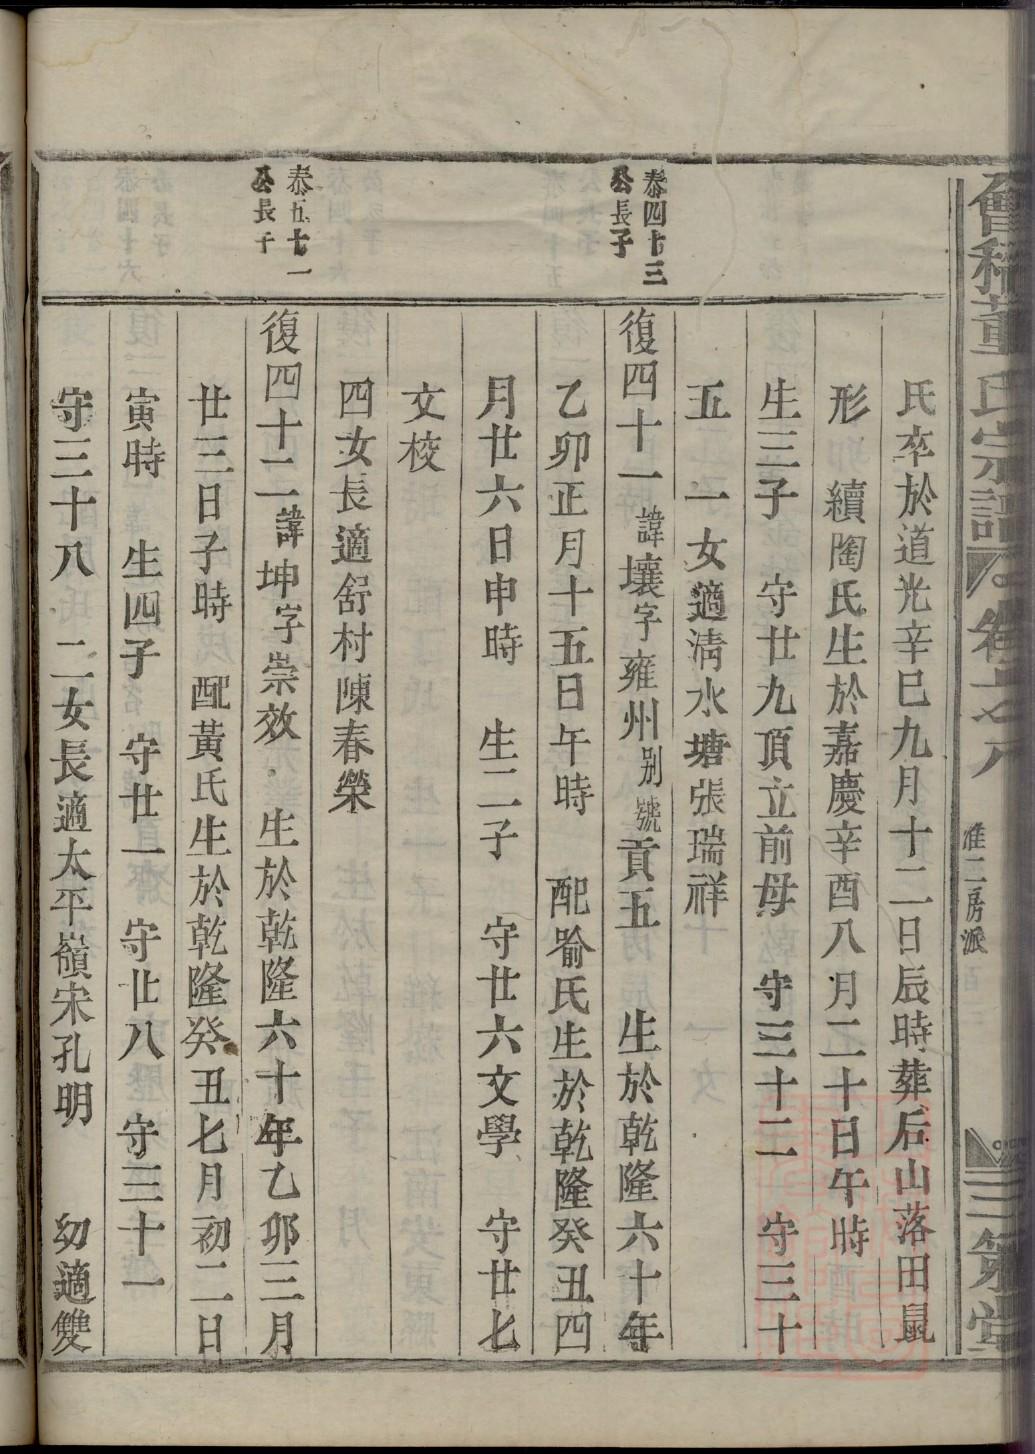 會稽董氏宗譜
卷之八
淮二房派
三策堂
氏卒於道光辛巳九月十二日辰時葬后山落田鼠
形 續陶氏生於嘉慶辛酉八月二十日午時
生三子 守廿九頂立前母 守三十二 守三十
五 一女適清水塘張瑞祥
泰四十三
公長子
復四十一諱壤字雍州别號貢五 生於乾隆六十年
乙卯正月十五日午時 配喻氏生於乾隆癸丑四
月廿六日申時 生二子 守廿六文學 守廿七
文校
四女長適舒村陳春榮
泰五十一
公長子
復四十二諱坤字崇效 生於乾隆六十年乙卯三月
廿三日子時 配黃氏生於乾隆癸丑七月初二日
寅時 生四子 守廿一 守廿八 守三十一
守三十八 二女長適太平嶺宋孔明 幼適雙